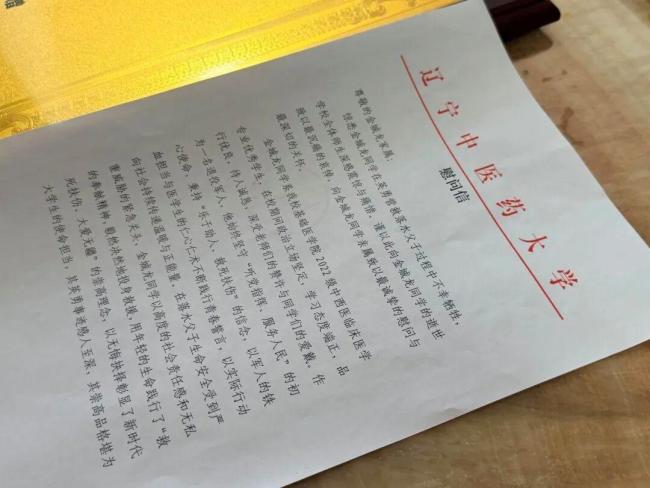 辽宁中医药大学
慰问信
尊敬的金城龙家属：
惊悉金城龙同学在英勇营救落水父子过程中不幸牺牲，
学校全体师生深感震惊与痛惜。谨以此向金城龙同学的逝世
致以最沉痛的哀悼，向金城龙同学亲属致以最诚挚的慰问与
最深切的关怀。
金城龙同学系我校基础医学院2022级中西医临床医学
专业优秀学生，在校期间政治立场坚定，学习态度端正，品
行优良，待人诚热，深受老师们的赞许与同学们的爱戴。作
为一名退役军人，他始终坚守“听党指挥、服务人民”的初
心使命，秉持“乐于助人、救死扶伤”的信念，以军人的铁
血担当与医学生的仁心仁术不断践行青春誓言，以实际行动
向社会持续传递温暖与正能量。在落水父子生命安全受到严
重威胁的紧急关头，金城龙同学以高度的社会责任感和无私
的奉献精神，毅然决然地投身救援，用年轻的生命践行了“救
死扶伤、大爱无疆”的崇高理念，以无悔抉择彰显了新时代
大学生的使命担当，其英勇事迹感人至深，其崇高品格堪为